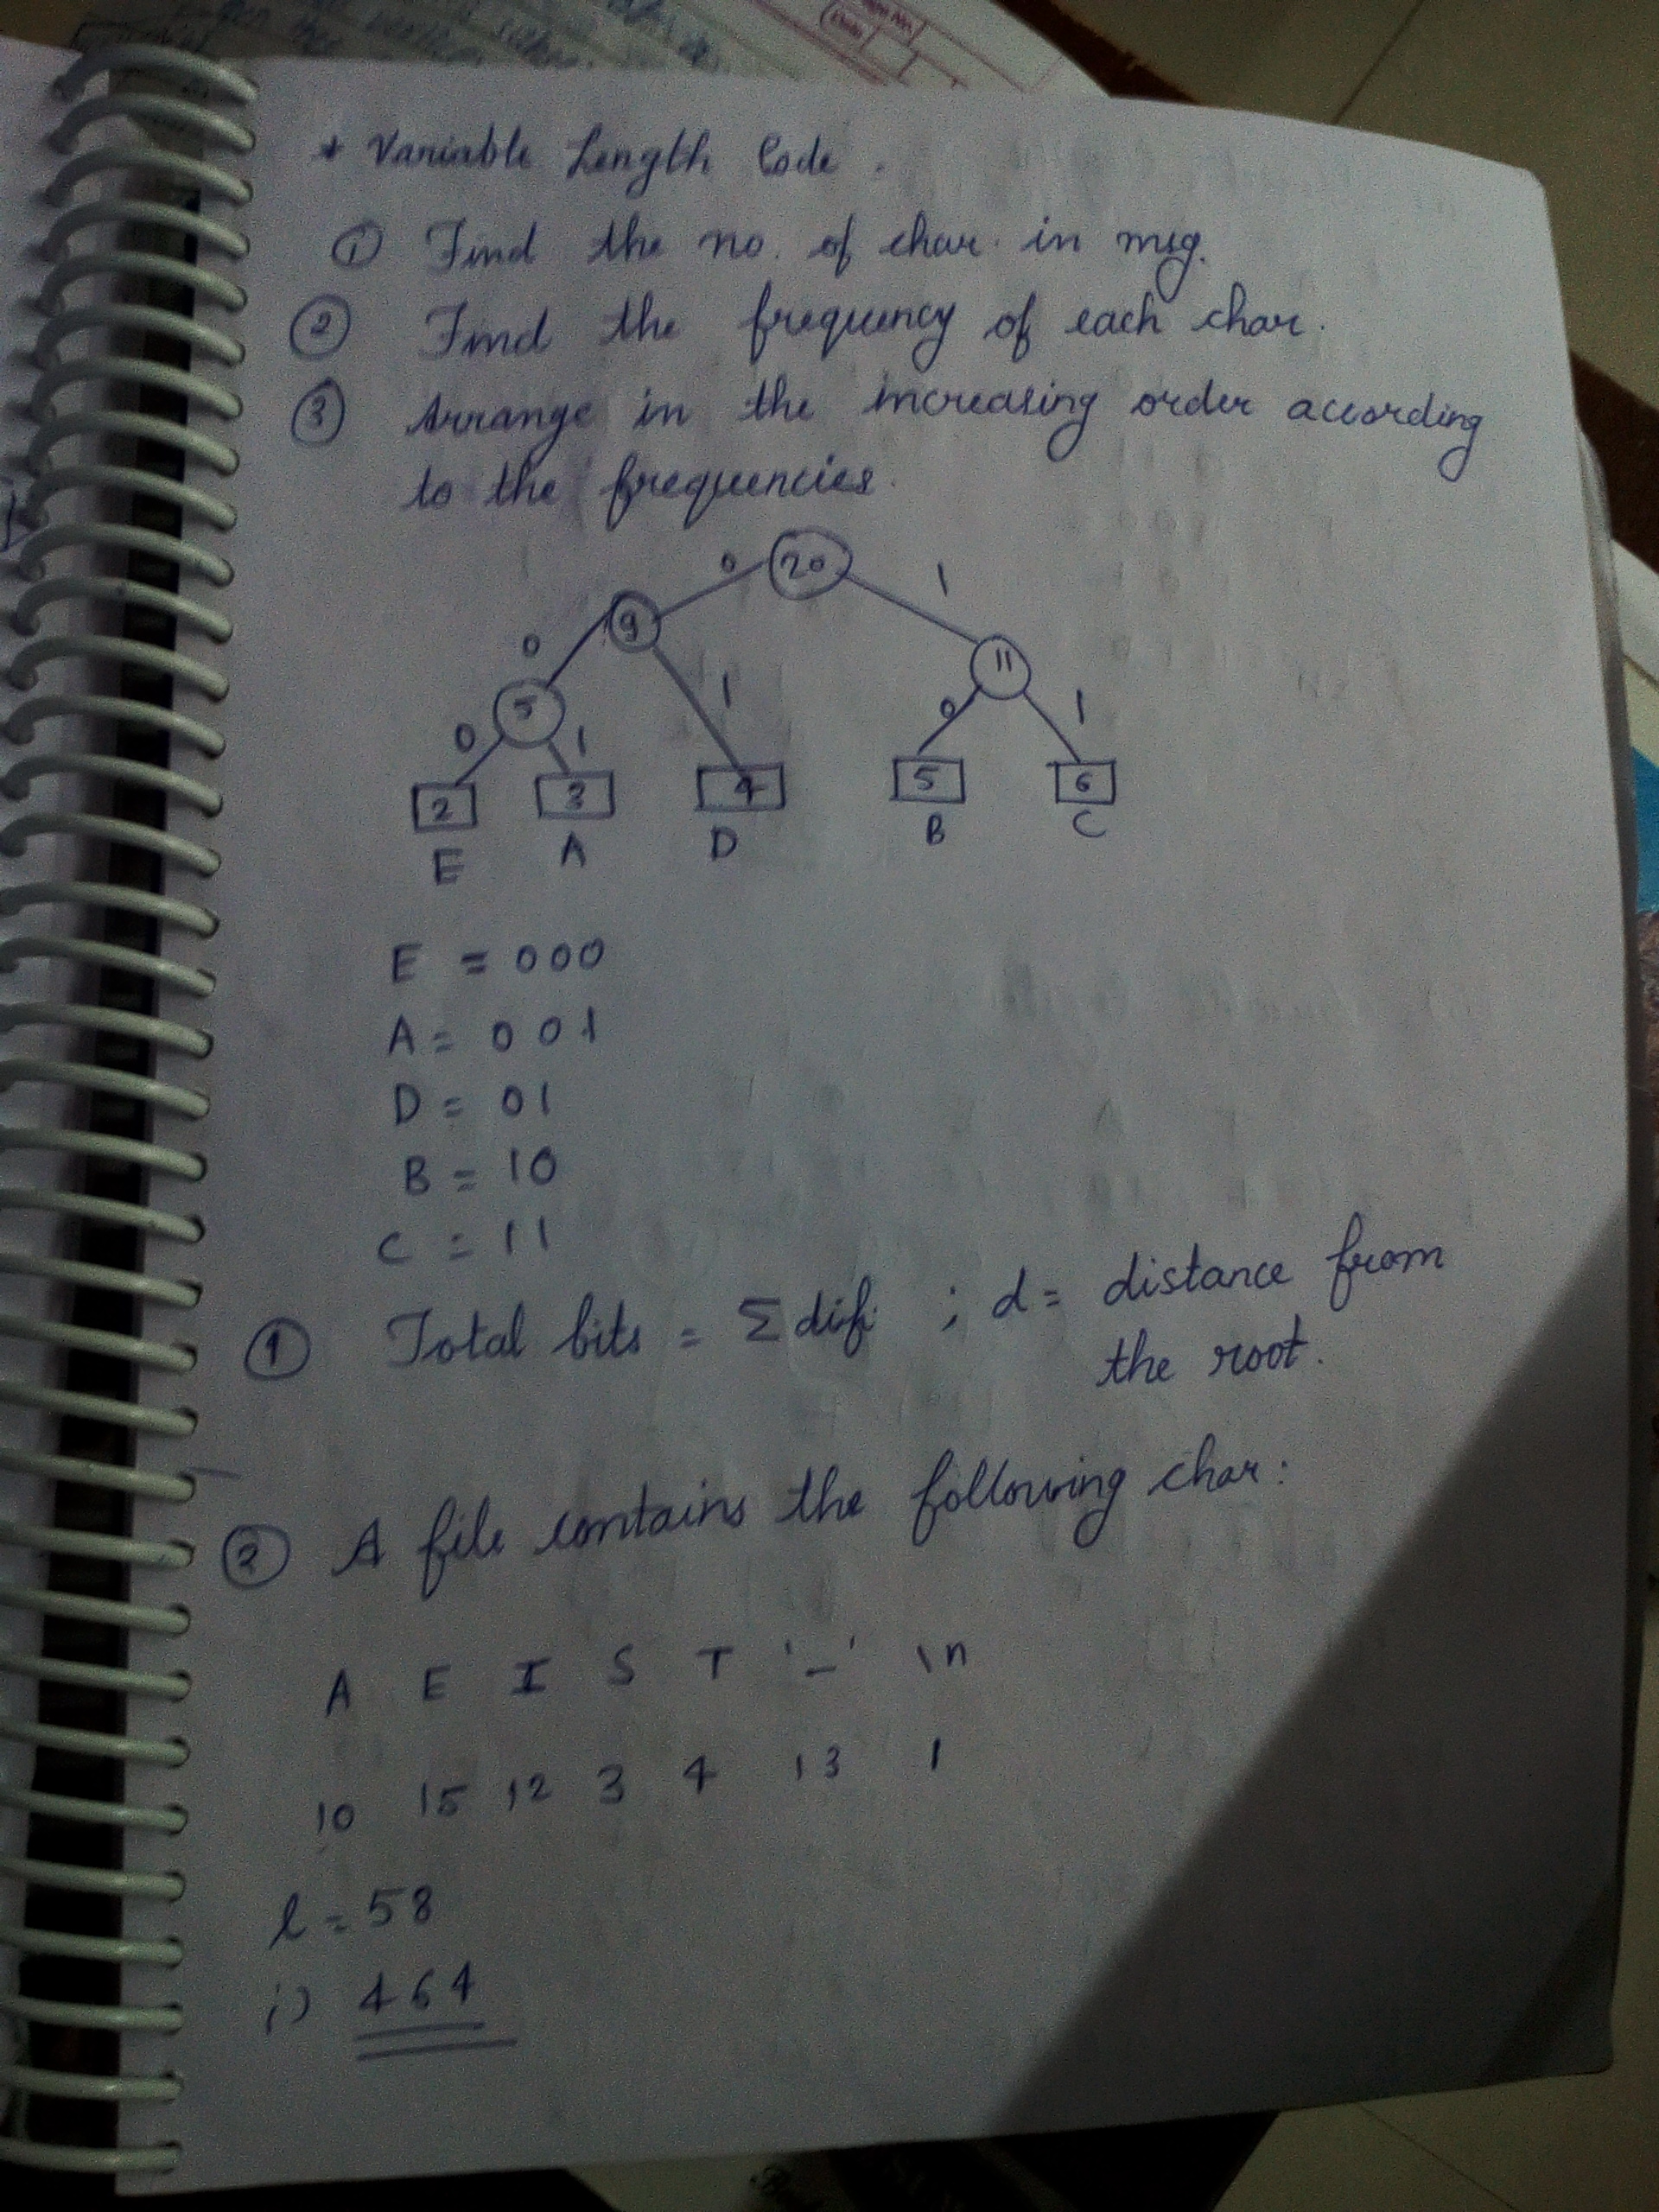 * Variable Length Code.
① Find the no. of char. in msg.
② Find the frequency of each char.
③ Arrange in the increasing order according
to the frequencies.
20
0 1
9 11
0 1 0 1
5
0 1
2 3 4 5 6
E A D B C
E = 000
A = 001
D = 01
B = 10
C = 11
① Total bits = Σ difi ; d = distance from
the root.
② A file contains the following char:
A E I S T '_' \n
10 15 12 3 4 13 1
l = 58
i) 464